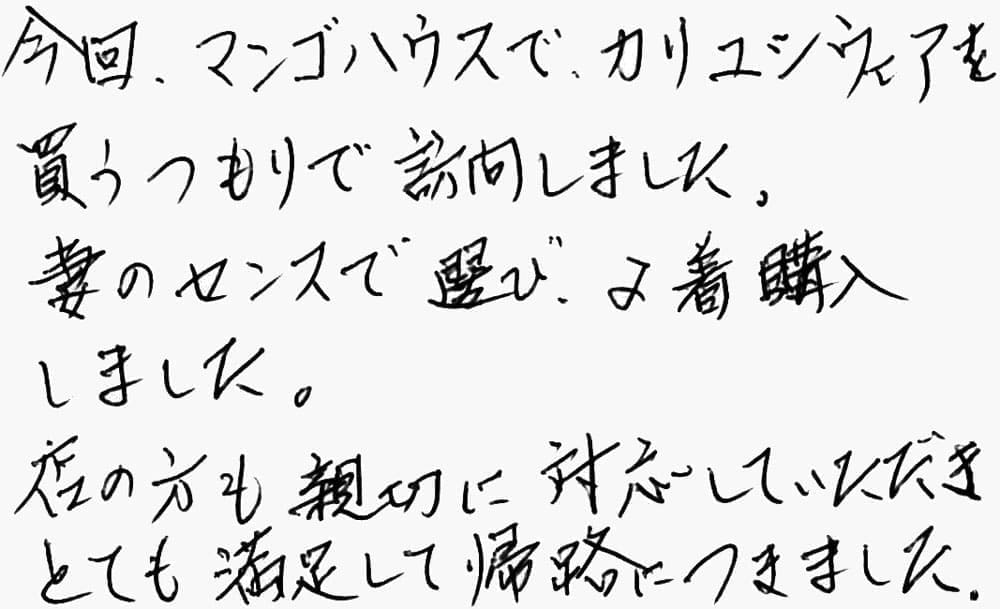 今回、マンゴハウスで、カリユシウェアを
買うつもりで訪問しました。
妻のセンスで選び、2着購入
しました。
店の方も親切に対応していただき
とても満足して帰路につきました。